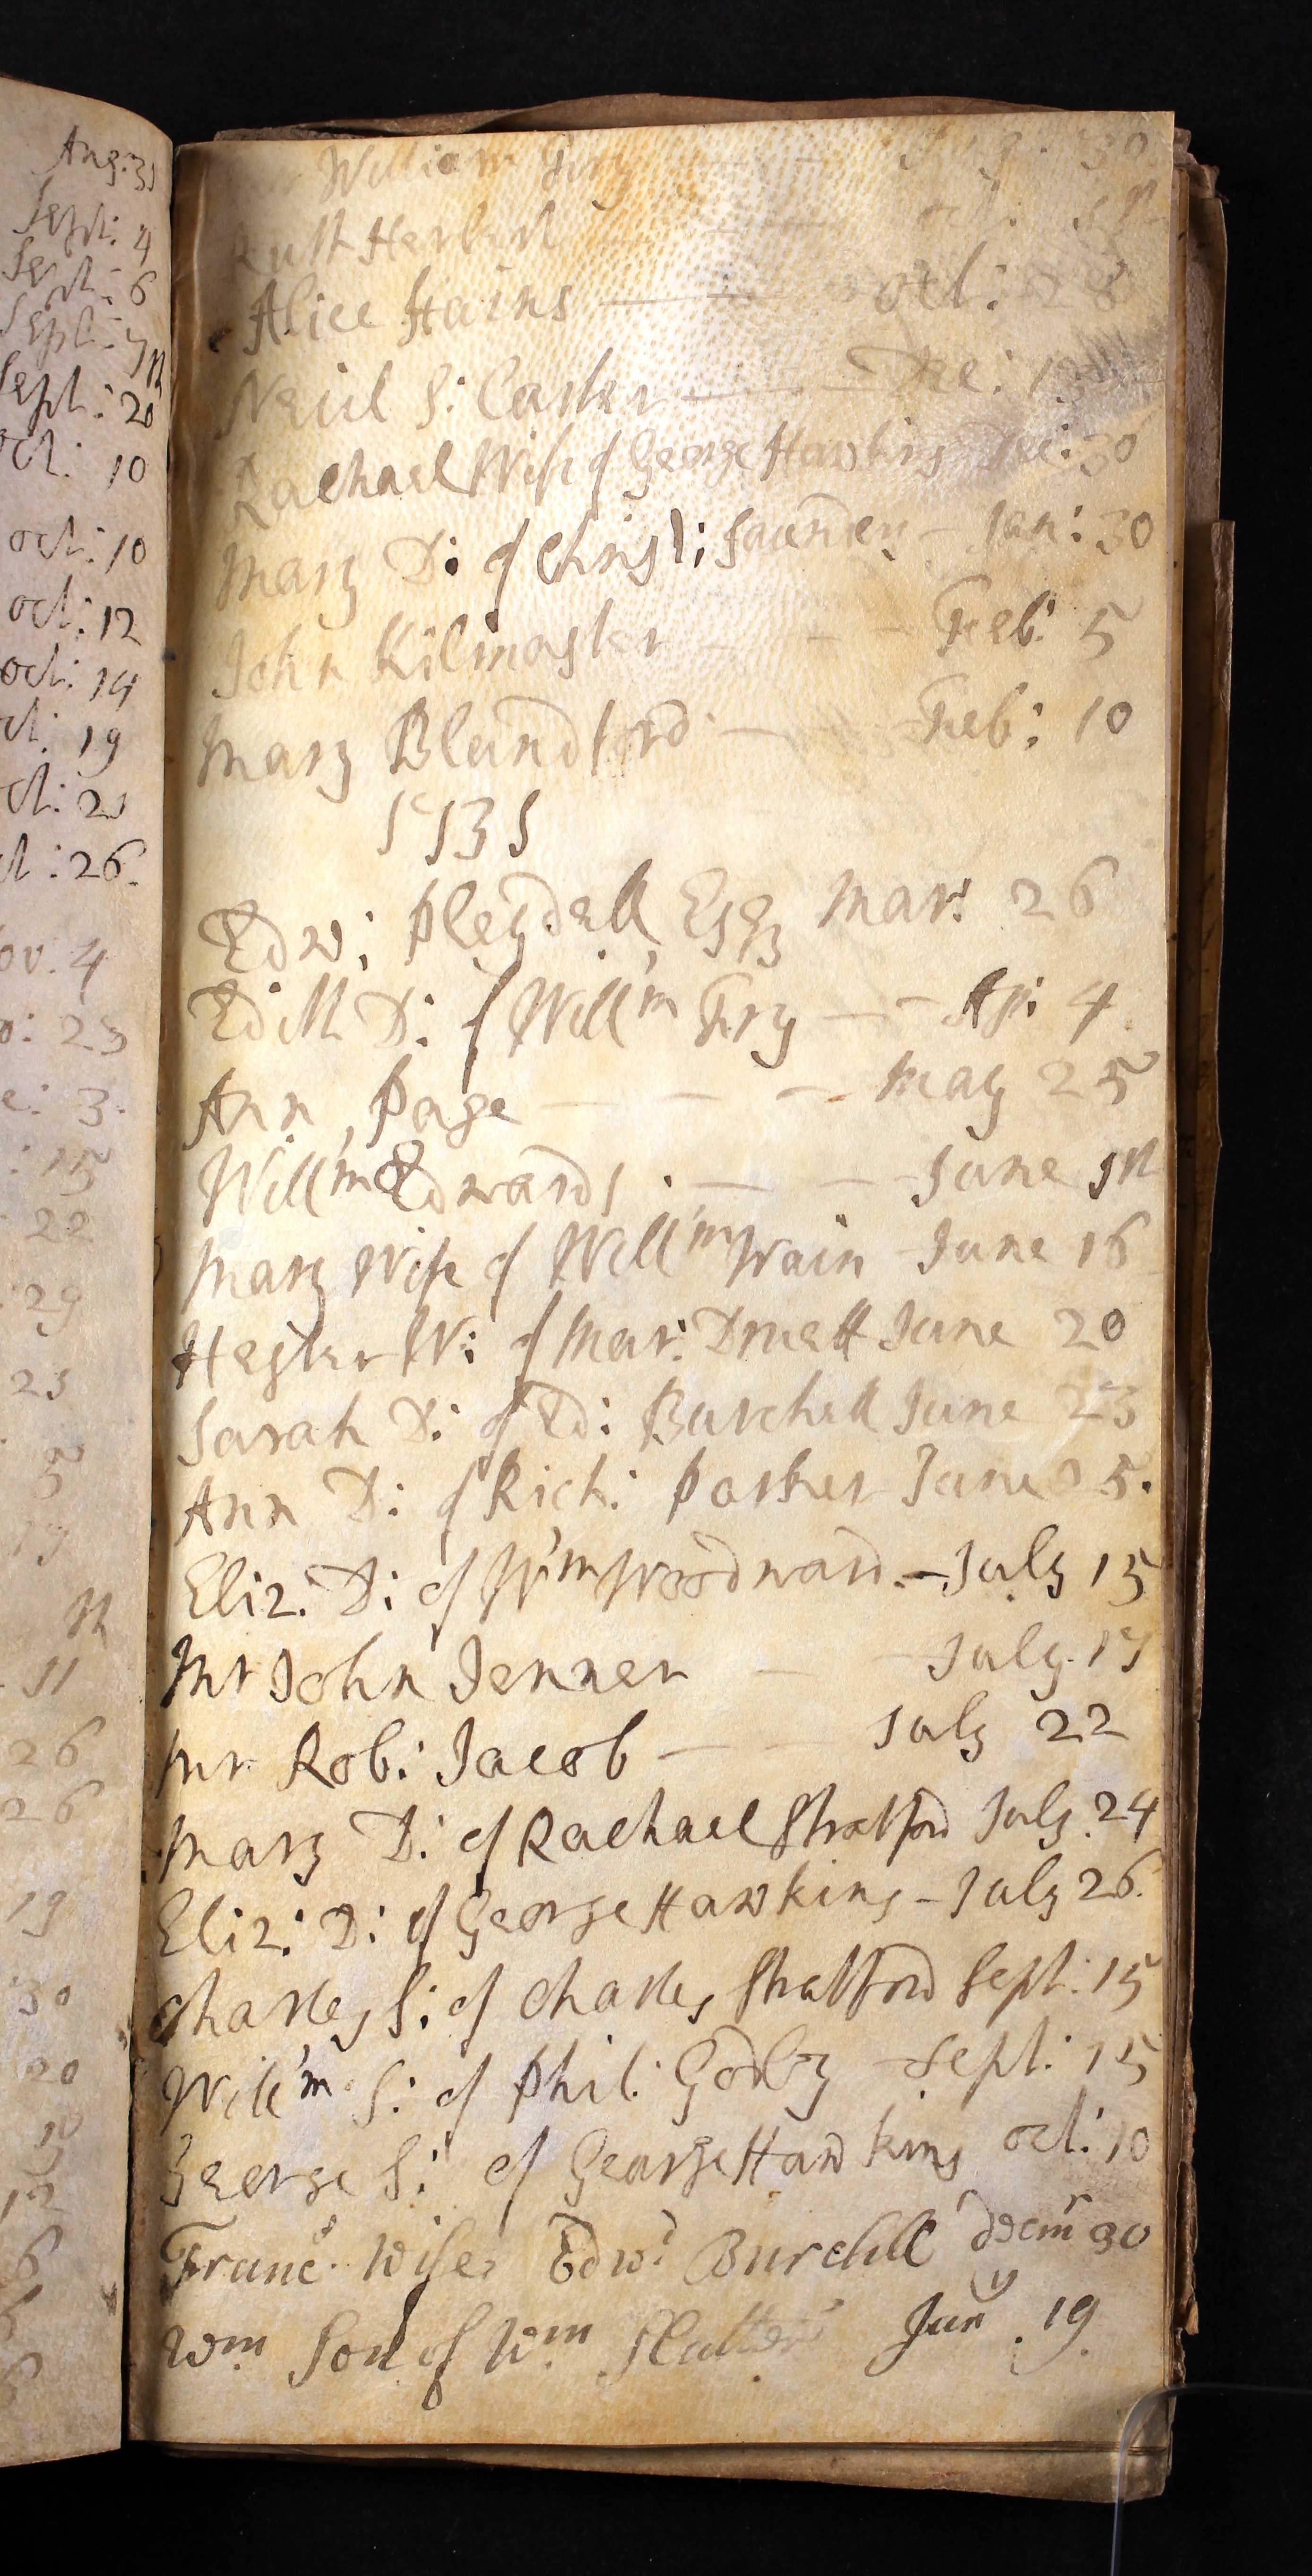 Aug: 31
Sept: 4
Sept: 6
Sept:
Sept: 20
oct: 10
oct: 10
oct: 12
oct: 14
ct: 19
ct: 21
ct: 26.
ov. 4
o: 23
e: 3.
: 15
22
29
23
5
19
11
26
26
19
30
20
12
6
William
Ruth Herbert oct:
Alice Hains oct: 28
S: Carter Dec: 13
Rachael Wife of George Hawkins Dec: 30
Mary D: of Christ: Saunders Jan: 30
John Kilmaster Feb: 5
Mary Blandford Feb: 10
1731
Edw: Pleydell, Esq Mar: 26
Edith D: of Will'm Fry Ap: 4
Ann Page May 25
Will'm Edwards June
Mary Wife of Will'm Wain June 16
Hester W: of Mar: Druett June 20
Sarah D: of Ed: Burchell June 23
Ann D: of Rich: Parker June 25.
Eliz: D: of W'm Woodward July 15
Mr John Jenner July 17
Mr Rob: Jacob July 22
Mary D: of Rachael Stratford July 24
Eliz: D: of George Hawkins July 26.
Charles S: of Charles Stratford Sept: 15
Will'm S: of Phil: Godby Sept: 15
George S: of George Hawkins oct: 10
Franc: Wife Edw: Burchell Decm 30
Wm Son of Wm Jany. 19